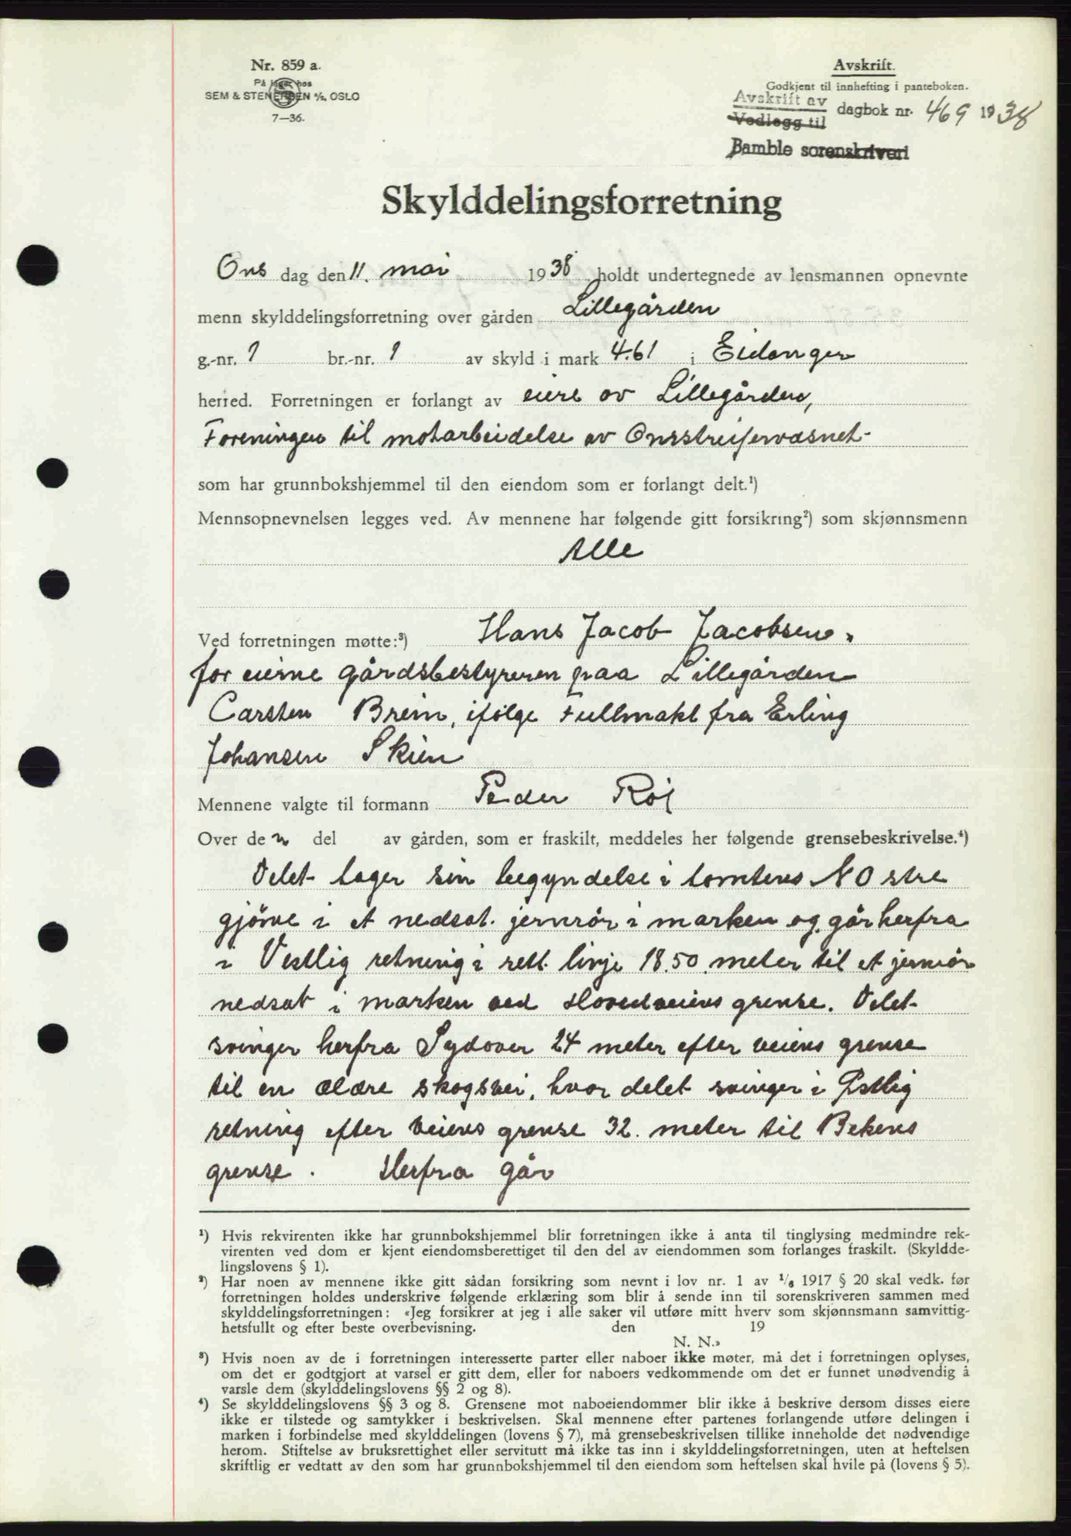 Nr. 859 a.
På lager hos
SEM & STENERSEN A/S, OSLO
7—36.
Avskrift.
Godkjent til innhefting i panteboken.
Avskrift av
Vedlegg til
dagbok nr. 469 1938
Bamble sorenskriveri
Skylddelingsforretning
Ons dag den 11. mai 1938 holdt undertegnede av lensmannen opnevnte
menn skylddelingsforretning over gården Lillegården
g.-nr. 1 br.-nr. 1 av skyld i mark 4.61 i Eidanger
herred. Forretningen er forlangt av eiere av Lillegården,
Foreningen til motarbeidelse av Omstreifervæsnet
som har grunnbokshjemmel til den eiendom som er forlangt delt.¹)
Mennsopnevnelsen legges ved. Av mennene har følgende gitt forsikring²) som skjønnsmenn
Alle
Ved forretningen møtte:³) Hans Jacob Jacobsen,
for eierne gårdsbestyreren paa Lillegården
Carsten Brein, ifölge Fullmakt fra Erling
Johansen Skien
Mennene valgte til formann Peder Röi
Over de n del av gården, som er fraskilt, meddeles her følgende grensebeskrivelse.⁴)
Delet tager sin begyndelse i tomtens NOstre
gjörne i et nedsat. jernrör i marken og går herfra
i Vestlig retning i rett linje 18.50 meter til et jernrör
nedsat i marken ved Hovedveiens grense. Delet
svinger herfra Sydover 24 meter efter veiens grense
til en ældre skogsvei, hvor delet svinger i Östlig
retning efter veiens grense 32. meter til Bekens
grense. Herfra går
¹) Hvis rekvirenten ikke har grunnbokshjemmel blir forretningen ikke å anta til tinglysing medmindre rek-
virenten ved dom er kjent eiendomsberettiget til den del av eiendommen som forlanges fraskilt. (Skyldde-
lingslovens § 1).
²) Har noen av mennene ikke gitt sådan forsikring som nevnt i lov nr. 1 av 1/6 1917 § 20 skal vedk. før
forretningen holdes underskrive følgende erklæring som blir å sende inn til sorenskriveren sammen med
skylddelingsforretningen: «Jeg forsikrer at jeg i alle saker vil utføre mitt hverv som skjønnsmann samvittig-
hetsfullt og efter beste overbevisning. den 19
N. N.»
³) Hvis noen av de i forretningen interesserte parter eller naboer ikke møter, må det i forretningen oplyses,
om det er godtgjort at varsel er gitt dem, eller for naboers vedkommende om det er funnet unødvendig å
varsle dem (skylddelingslovens §§ 2 og 8).
⁴) Se skylddelingslovens §§ 3 og 8. Grensene mot naboeiendommer blir ikke å beskrive dersom disses eiere
ikke er tilstede og samtykker i beskrivelsen. Skal mennene efter partenes forlangende utføre delingen i
marken i forbindelse med skylddelingen (lovens § 7), må grensebeskrivelsen tillike inneholde det nødvendige
herom. Stiftelse av bruksrettighet eller servitutt må ikke tas inn i skylddelingsforretningen, uten at heftelsen
skriftlig er vedtatt av den som har grunnbokshjemmel til den eiendom som heftelsen skal hvile på (lovens § 5).